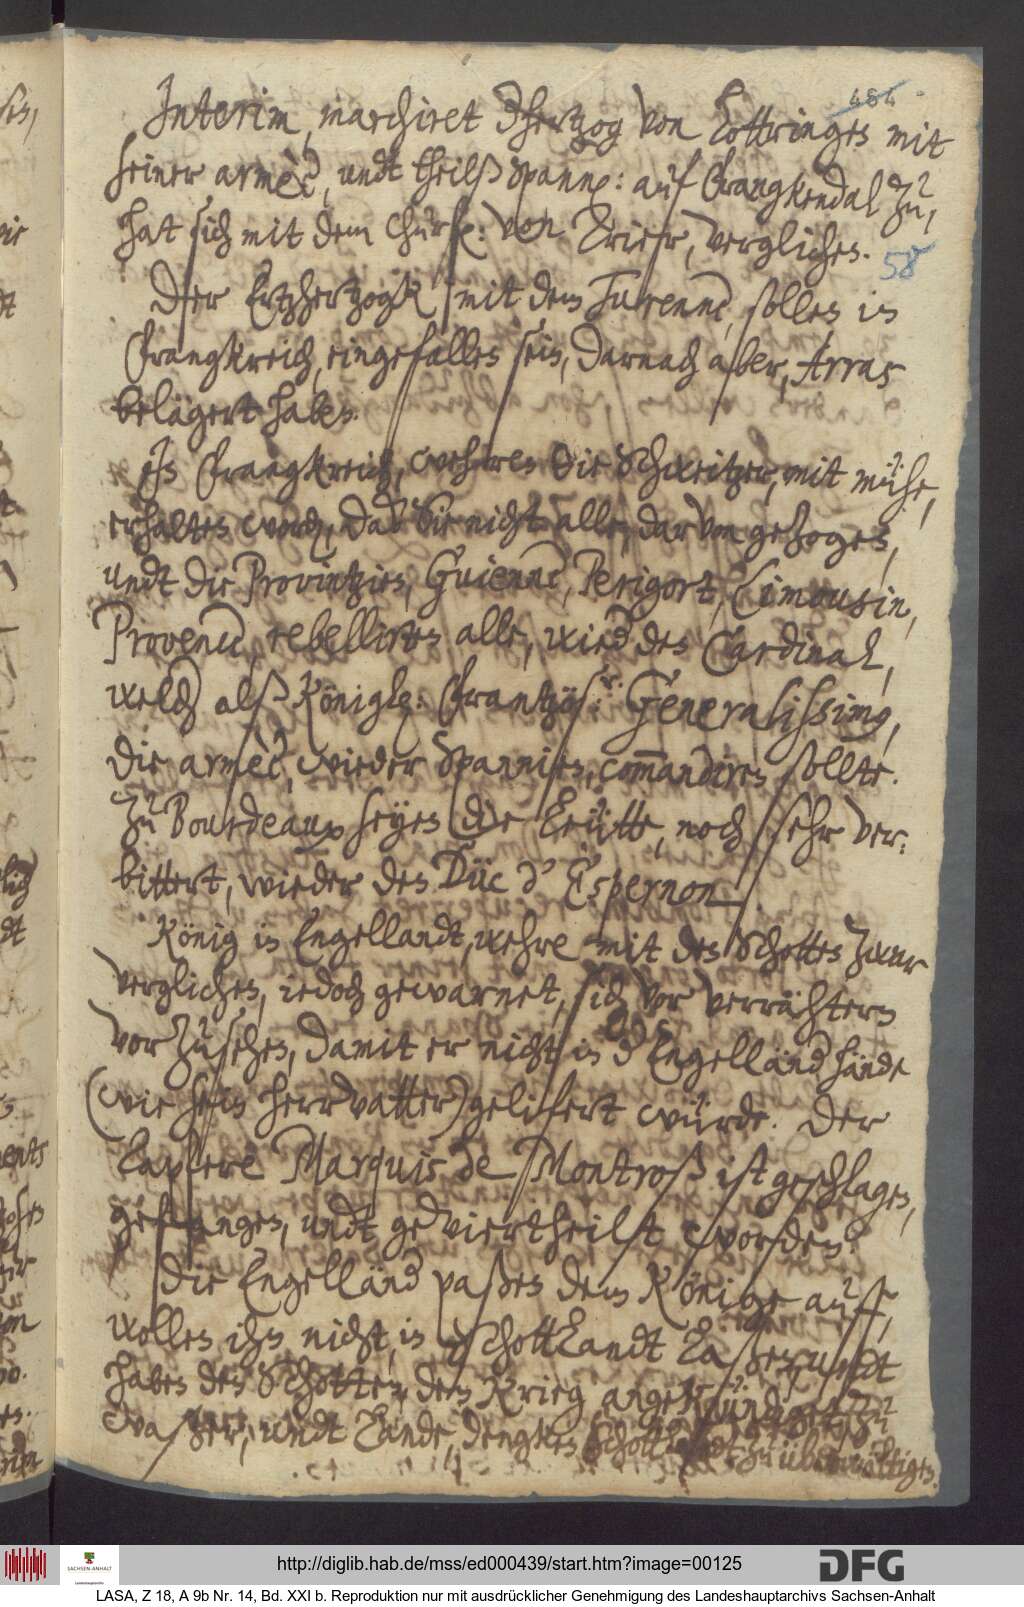 484
Interim, marchiret Dhertzog von Lottringen mit
seiner armèe, undt theilß Spann: auf Frangkendal zu,
hat sich mit dem Churf: von Trier, verglichen.
58
Der Ertzhertzogk mit dem Turenne, sollen in
Frangkreich, eingefallen sein, darnach aber, Arras
belägert haben.
In Frangkreich, wehren die Schweitzer, mit mühe,
erhalten word, daß Sie nicht alle, darvon gezogen,
undt die Provintzien, Guienne, Perigort, Limousin,
Provence, rebelliren alle, wied den Cardinal,
welch alß Königl: Frantzös:r Generalissimg,
die armèe, wieder Spannien, comandiren sollte.
Zu Bourdeaux seyen die Leütte, noch sehr ver:
bittert, wieder den Düc d' Espernon.
König in Engellandt, wehre mit den Schotten zwar
verglichen, iedoch gewarnet, sich vor verrähtern
vor zusehen, damit er nicht in d Engelländ hände
(wie sein herrvatter) gelifert würde. Der
Tapfere Marquis de Montroß ist geschlagen,
gefangen, undt geviertheilt worden.
Die Engelländ paßen dem Könige auff,
wollen ihn nicht, in Schottlandt laßen, undt
haben den Schotten, den Krieg angekündiget, zu
waßer, undt Lande, dengken Schottlandt zu überwältigen.
http://diglib.hab.de/mss/ed000439/start.htm?image=00125
DFG
SACHSEN-ANHALT
LASA, Z 18, A 9b Nr. 14, Bd. XXI b. Reproduktion nur mit ausdrücklicher Genehmigung des Landeshauptarchivs Sachsen-Anhalt